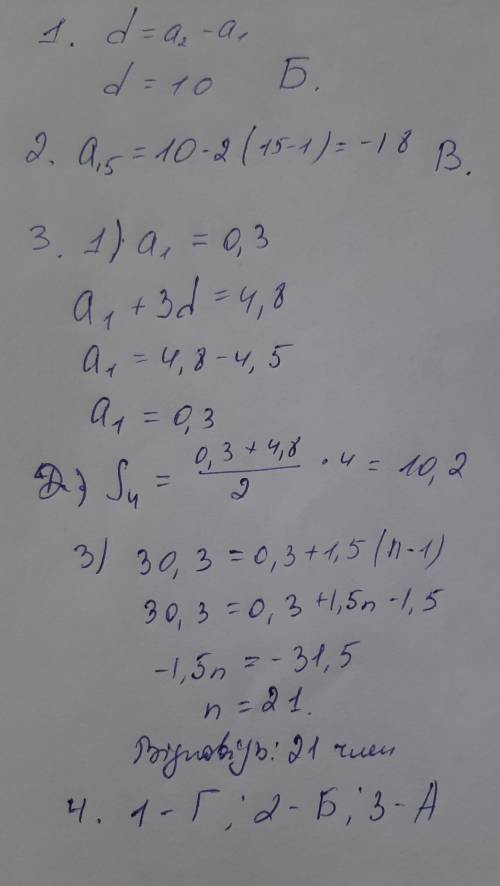 1. d = a₂ - a₁
d = 10 Б.
2. a₁₅ = 10 - 2(15-1) = -18 В.
3. 1) a₁ = 0,3
a₁ + 3d = 4,8
a₁ = 4,8 - 4,5
a₁ = 0,3
2) S₄ = (0,3 + 4,8)/2 · 4 = 10,2
3) 30,3 = 0,3 + 1,5(n-1)
30,3 = 0,3 + 1,5n - 1,5
-1,5n = -31,5
n = 21.
Відповідь: 21 член
4. 1 - Г; 2 - Б; 3 - А